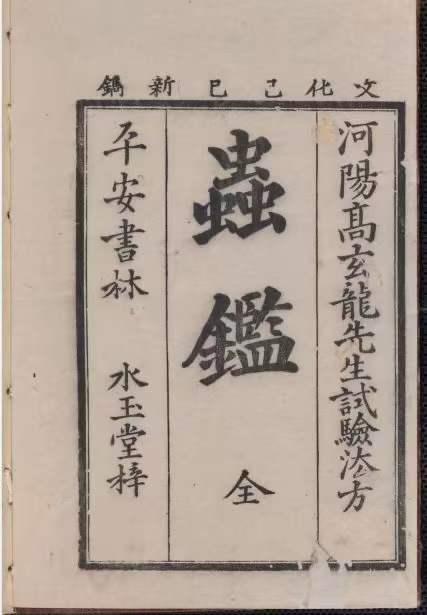 文化己巳新鐫
河陽髙玄龍先生試驗法方
蟲鑑
全
平安書林 水玉堂梓